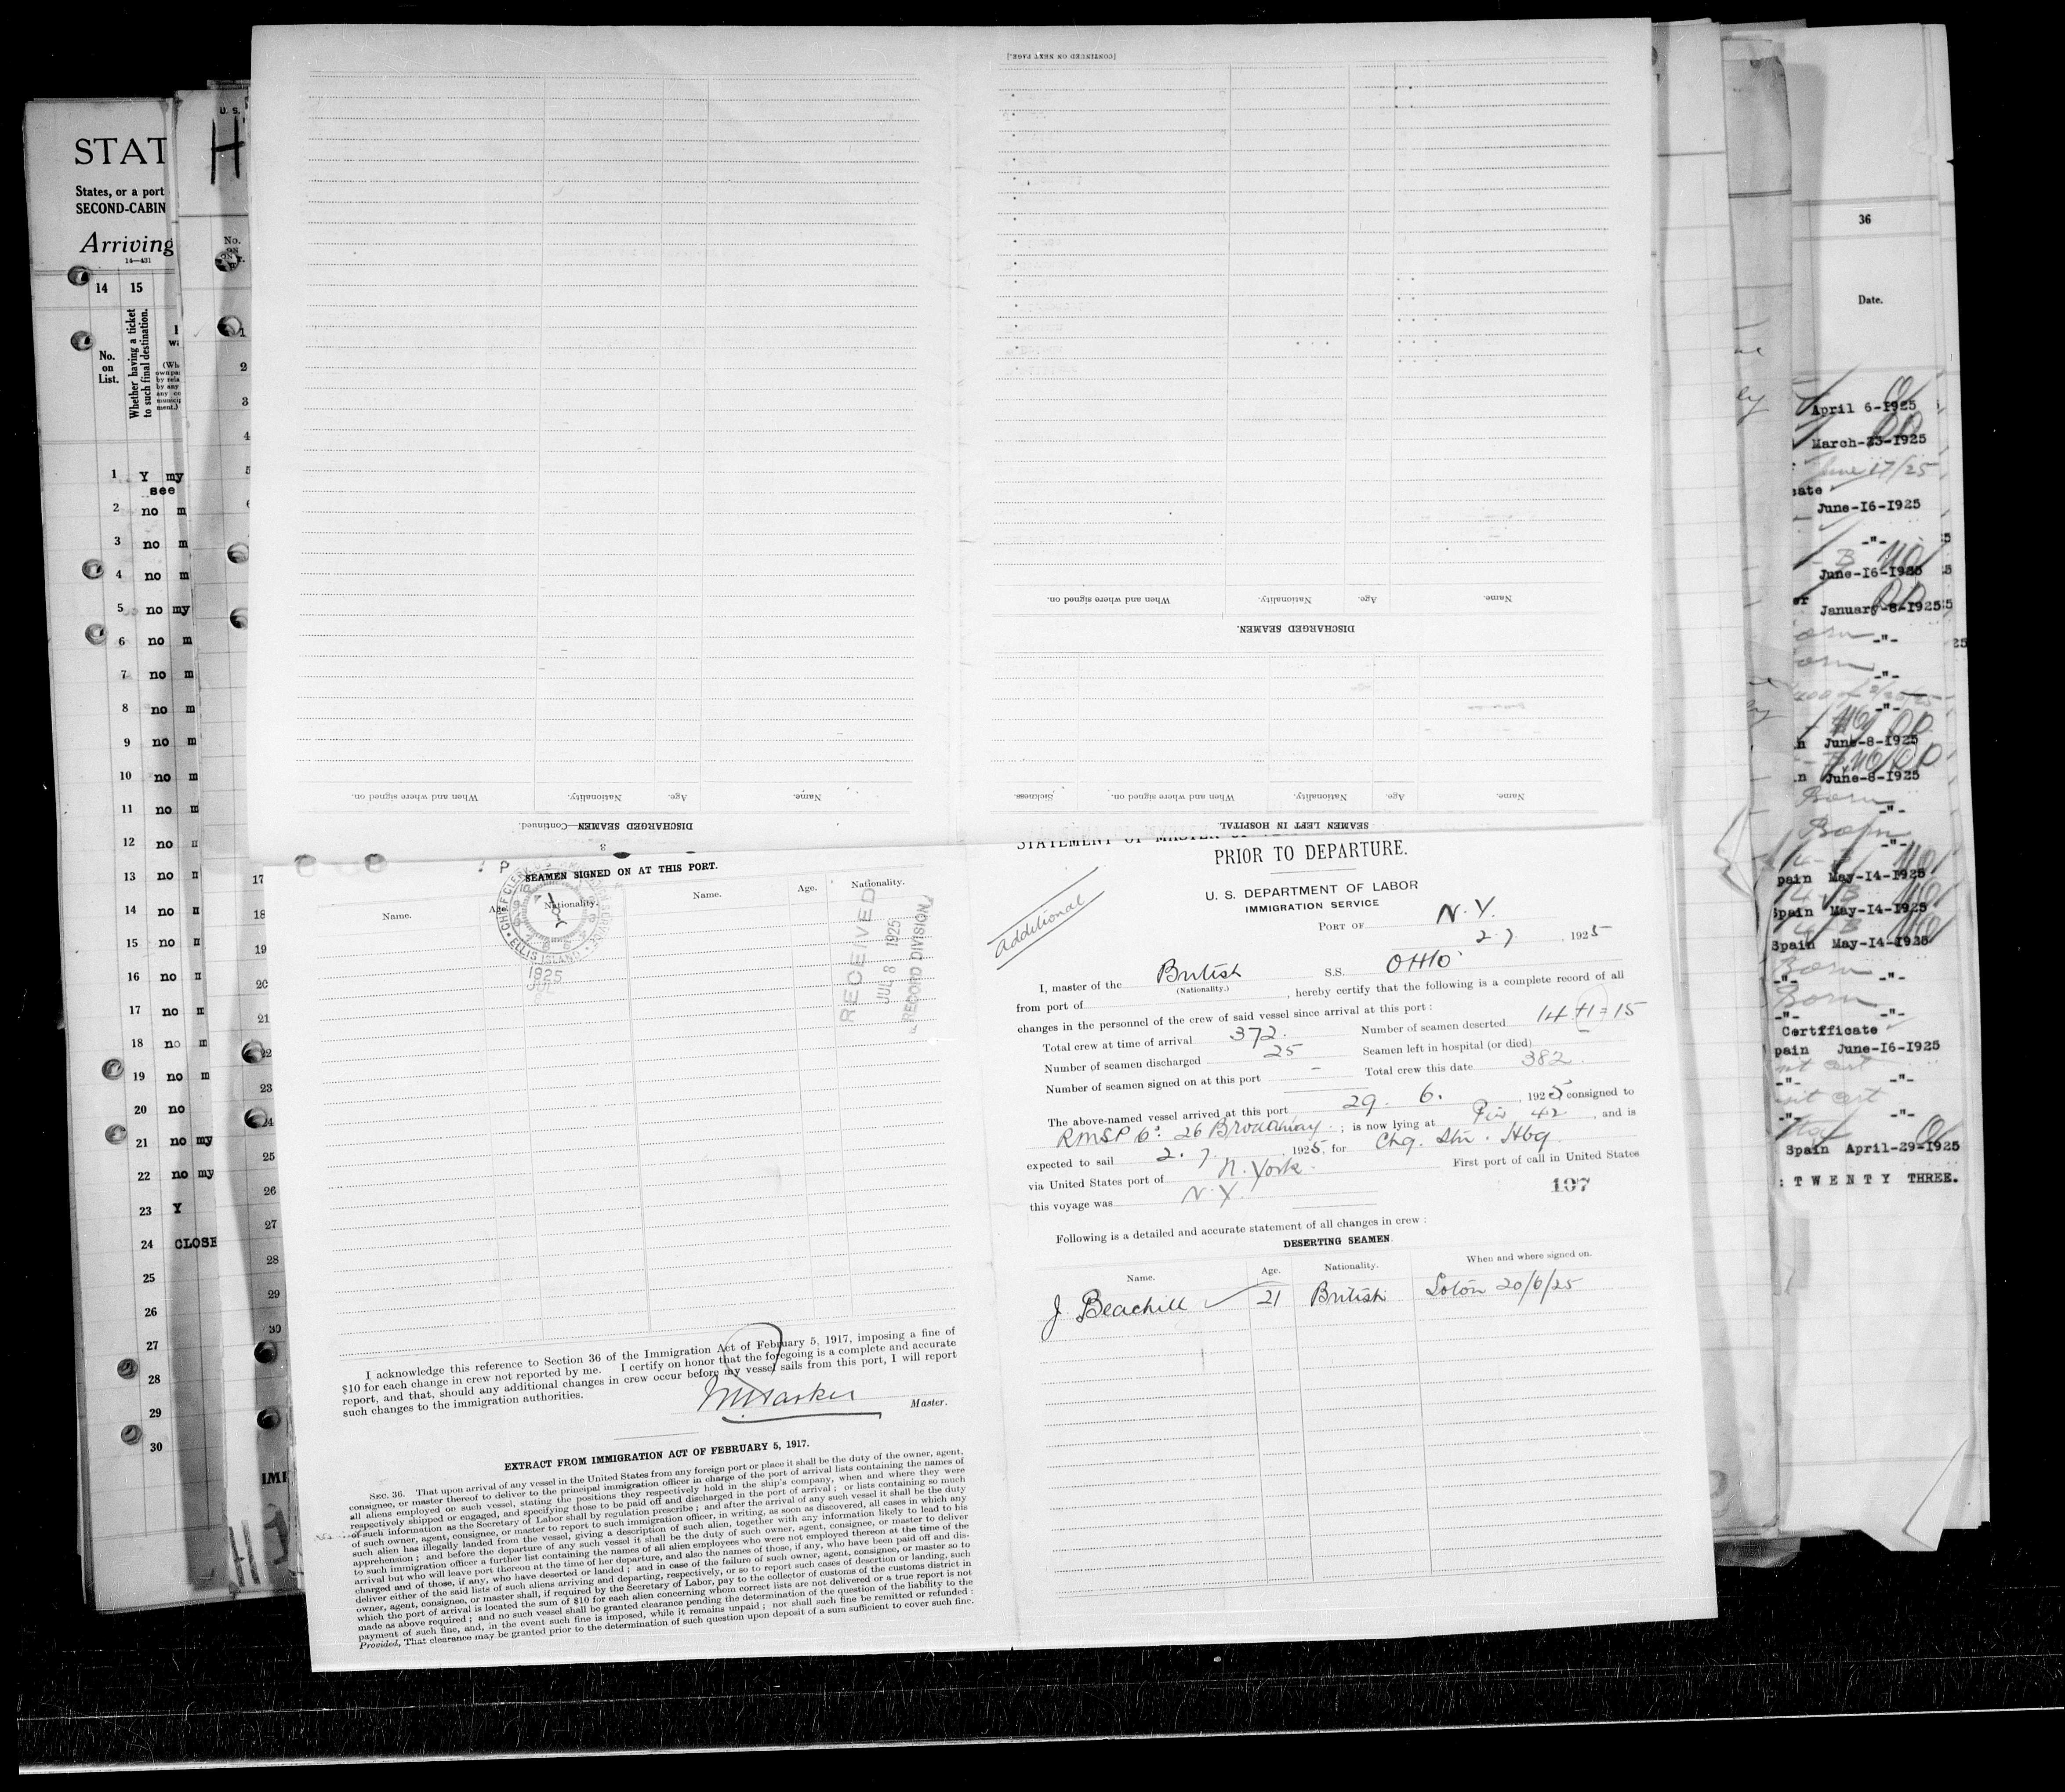 STAT
States, or a port
SECOND-CABIN
Arriving
14—431
14 15
No.
on
List.
Whether having a ticket
to such final destination.
1 Y my
see
2 no m
3 no m
4 no m
5 no my
6 no m
7 no m
8 no m
9 no m
10 no m
11 no m
12 no
13 no
14 no
15 no
16 no
17 no
18 no m
19 no m
20 no
21 no my
22 no my
23 Y
24 CLOSE
25
26
27
28
29
30
U. S.
H
No.
1
2
3
4
5
17
18
19
20
21
22
23
24
25
26
27
28
29
30
IMI
[CONTINUED ON NEXT PAGE.]
When and where signed on.
Nationality.
Age.
Name.
DISCHARGED SEAMEN.
When and where signed on.
Nationality.
Age.
Name.
DISCHARGED SEAMEN—Continued.
3
Sickness.
When and where signed on.
Nationality.
Age.
Name.
SEAMEN LEFT IN HOSPITAL.
SEAMEN SIGNED ON AT THIS PORT.
Name.
Age.
Nationality.
Name.
Age.
Nationality.
ELLIS ISLAND
1925
RECEIVED
JUL 8 1925
RECORD DIVISION
I acknowledge this reference to Section 36 of the Immigration Act of February 5, 1917, imposing a fine of
$10 for each change in crew not reported by me. I certify on honor that the foregoing is a complete and accurate
report, and that, should any additional changes in crew occur before my vessel sails from this port, I will report
such changes to the immigration authorities.
Master.
EXTRACT FROM IMMIGRATION ACT OF FEBRUARY 5, 1917.
SEC. 36. That upon arrival of any vessel in the United States from any foreign port or place it shall be the duty of the owner, agent,
consignee, or master thereof to deliver to the principal immigration officer in charge of the port of arrival lists containing the names of
all aliens employed on such vessel, stating the positions they respectively hold in the ship's company, when and where they were
respectively shipped or engaged, and specifying those to be paid off and discharged in the port of arrival; or lists containing so much
of such information as the Secretary of Labor shall by regulation prescribe; and after the arrival of any such vessel it shall be the duty
of such owner, agent, consignee, or master to report to such immigration officer, in writing, as soon as discovered, all cases in which any
such alien has illegally landed from the vessel, giving a description of such alien, together with any information likely to lead to his
apprehension; and before the departure of any such vessel it shall be the duty of such owner, agent, consignee, or master to deliver
to such immigration officer a further list containing the names of all alien employees who were not employed thereon at the time of the
arrival but who will leave port thereon at the time of her departure, and also the names of those, if any, who have been paid off and dis-
charged and of those, if any, who have deserted or landed; and in case of the failure of such owner, agent, consignee, or master so to
deliver either of the said lists of such aliens arriving and departing, respectively, or so to report such cases of desertion or landing, such
owner, agent, consignee, or master shall, if required by the Secretary of Labor, pay to the collector of customs of the customs district in
which the port of arrival is located the sum of $10 for each alien concerning whom correct lists are not delivered or a true report is not
made as above required; and no such vessel shall be granted clearance pending the determination of the question of the liability to the
payment of such fine, and, in the event such fine is imposed, while it remains unpaid; nor shall such fine be remitted or refunded:
Provided, That clearance may be granted prior to the determination of such question upon deposit of a sum sufficient to cover such fine.
STATEMENT OF MASTER OF
PRIOR TO DEPARTURE.
Additional
U. S. DEPARTMENT OF LABOR
IMMIGRATION SERVICE
PORT OF N.Y.
2.7, 1925
I, master of the British S.S. OHIO
(Nationality.)
from port of , hereby certify that the following is a complete record of all
changes in the personnel of the crew of said vessel since arrival at this port:
Total crew at time of arrival 372. Number of seamen deserted 14 + 1 = 15
Number of seamen discharged 25 Seamen left in hospital (or died)
Number of seamen signed on at this port – Total crew this date 382.
The above-named vessel arrived at this port 29. 6. , 1925 consigned to
RMSP Co. 26 Broadway ; is now lying at Pier 42 , and is
expected to sail 2. 7. , 1925, for Chg. Stn. Hbg
via United States port of N. York. First port of call in United States
this voyage was N.Y. 197
Following is a detailed and accurate statement of all changes in crew:
DESERTING SEAMEN.
Name. Age. Nationality. When and where signed on.
J Beachill 21 British Soton 20/6/25
36
Date.
April 6-1925
March-23-1925
June 17/25
June-16-1925
-"-
June-16-1925
January-8-1925
-"-
-"-
-"-
June-8-1925
June-8-1925
Born
-"-
Born
-"-
pain May-14-1925
Spain May-14-1925
Spain May-14-1925
Born
-"- -"-
Born
-"- -"-
Certificate
pain June-16-1925
-"- -"-
-"- -"-
Spain April-29-1925
: T W E N T Y THREE.